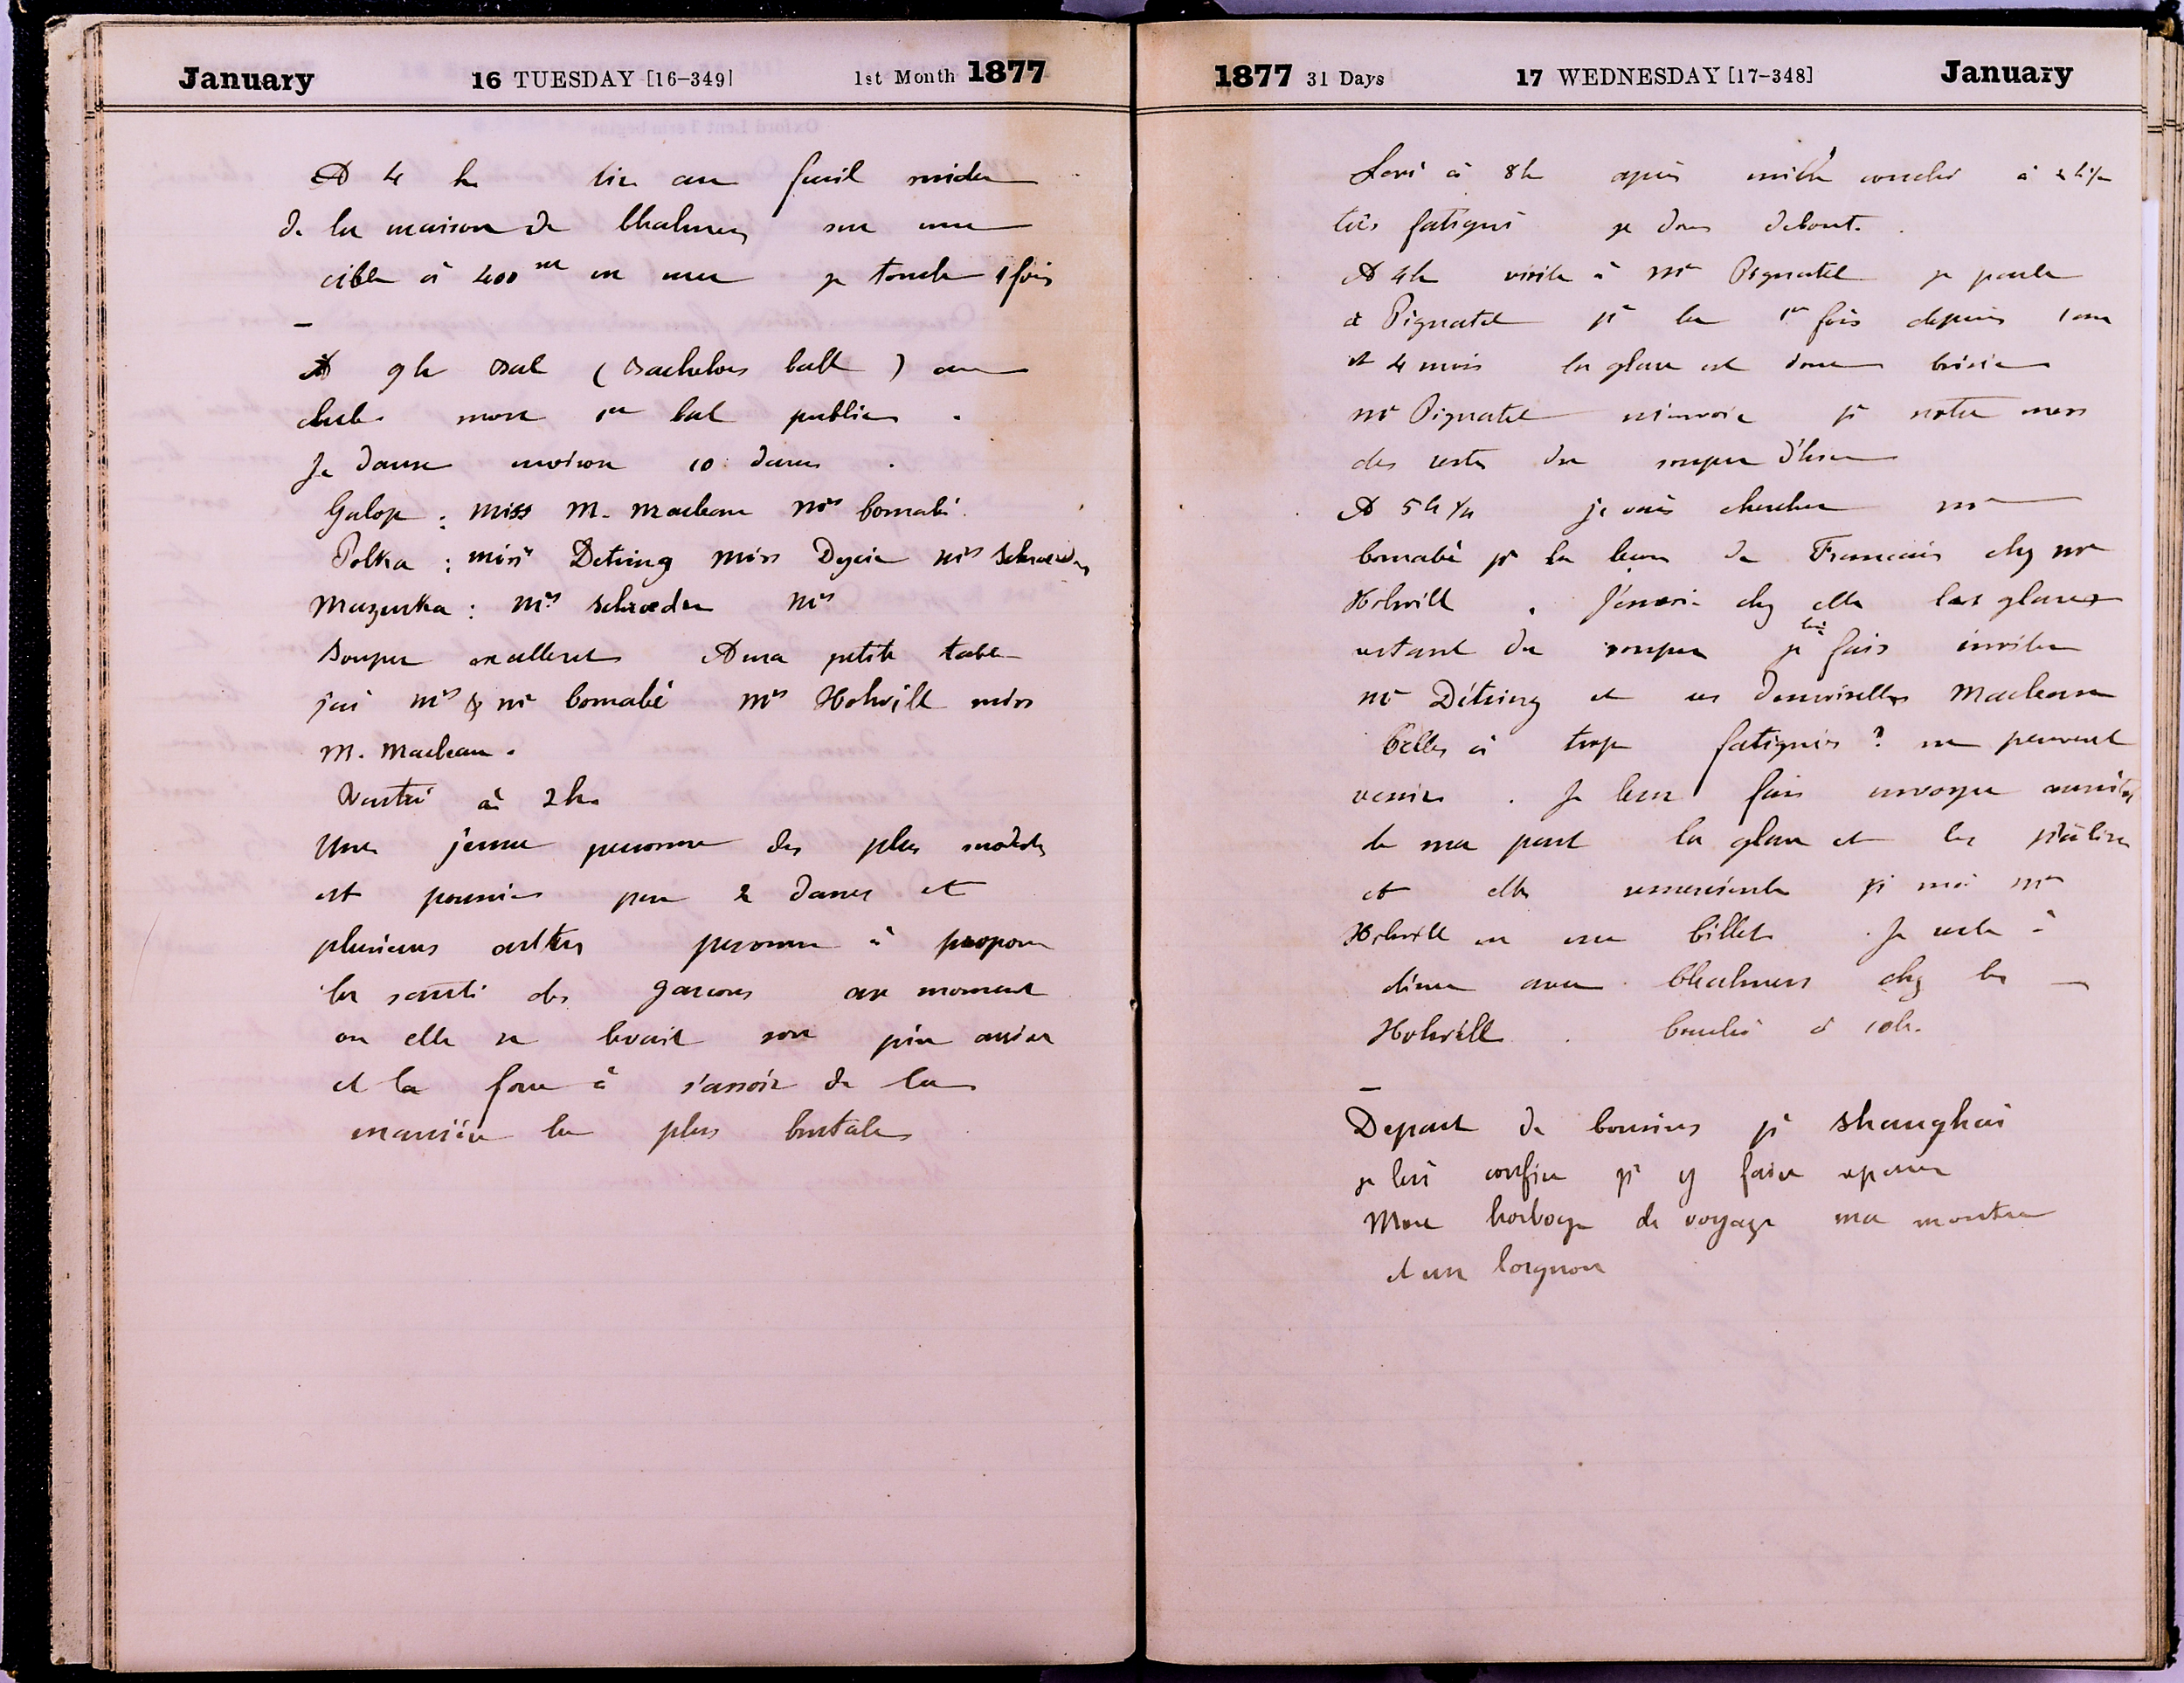 January 16 TUESDAY [16-349] 1st Month 1877
A 4 h tir au fusil snider
de la maison de Chalmers sur une
cible à 400 m en mer je touche 1 fois
—
A 9 h Bal (Bachelors ball) au
club mon 1er bal public.
Je danse environ 10 danses.
Galop : Miss M. Maclean Mrs Cornabé
Polka : Miss Detring Miss Dycie Mrs Schroeder
Mazurka : Mrs Schroeder Mrs
Souper excellent A ma petite table
j'ai Mrs & Mr Cornabé Mrs Holwill Miss
M. Maclean.
Rentré à 2h
Une jeune personne des plus
est pour 2 danses et
plusieurs autres personne à propos
la santé des garçons au moment
ou elle se levait son père
et la force à s'assoir de la
manière la plus brutale
1877 31 Days 17 WEDNESDAY [17-348] January
Levé à 8h après couché à
très fatigué je dors debout.
A 4h visite à Mr Pignatel je parle
à Pignatel pr la 1re fois depuis 1 an
et 4 mois la glace est donc brisée
Mr Pignatel m'envoie pr notre mess
des restes du souper d'hier
A 5h 1/4 je vais chercher Mr
Cornabé pr la leçon de Francais chez Mr
Holwill. J'envoie chez elle les glaces
restant du souper je lui fais inviter
Mr Détring et ses demoiselles Maclean
Celles ci trop fatiguées ? ne peuvent
venir. Je leur fais envoyer
de ma part la glace et les
et elles remercient pr moi Mr
Holwill en un billet. Je reste à
diner avec Chalmers chez les —
Holwill. Couché à 10h.
—
Depart de Cousins pr Shanghai
je lui confie pr y faire reparer
Mon horloge de voyage ma montre
et un lorgnon